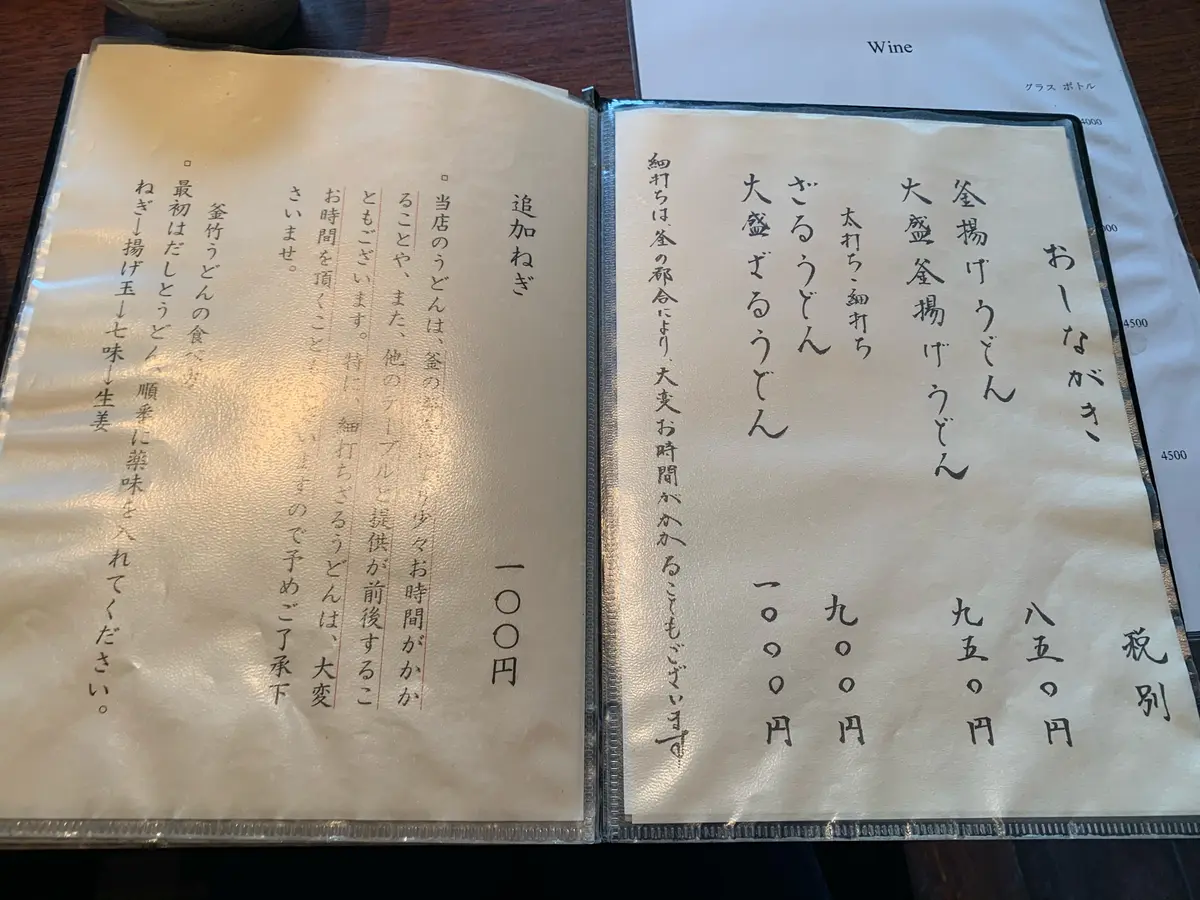 Wine
グラス ボトル
4000
000
4500
4500
おしながき
税別
釜揚げうどん 八五〇円
大盛釜揚げうどん 九五〇円
太打ち・細打ち
ざるうどん 九〇〇円
大盛ざるうどん 一〇〇〇円
細打ちは、釜の都合により、大変お時間がかかることもございます
追加ねぎ 一〇〇円
▫ 当店のうどんは、釜の により少々お時間がかか
ることや、また、他のテーブルと提供が前後するこ
ともございます。特に、細打ちざるうどんは、大変
お時間を頂くこと ございますので予めご了承下
さいませ。
釜竹うどんの食べ方
▫ 最初はだしとうどん、順番に薬味を入れてください。
ねぎ→揚げ玉→七味→生姜